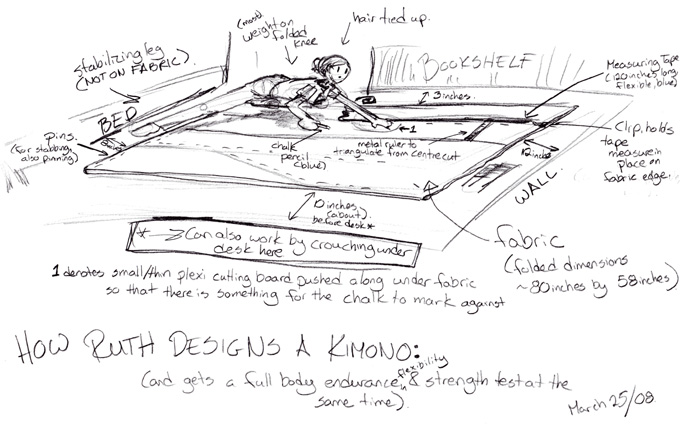 (most)
weight on
folded
knee
hair tied up.
stabilizing leg
(NOT ON FABRIC).
BOOKSHELF
Measuring Tape
(120 inches long,
flexible, blue)
3 inches.
BED
Pins.
(for stabbing,
also pinning)
←1
chalk
pencil
(blue)
metal ruler to
triangulate from centre cut
12 inches
Clip, holds
tape
measure in
place on
fabric edge.
WALL
10 inches
(about).
before desk*
fabric
(folded dimensions
~80 inches by 58 inches)
* → Can also work by crouching under
desk here
1 denotes small/thin plexi cutting board pushed along under fabric
so that there is something for the chalk to mark against
HOW RUTH DESIGNS A KIMONO:
(and gets a full body endurance, flexibility & strength test at the
same time).
March 25/08